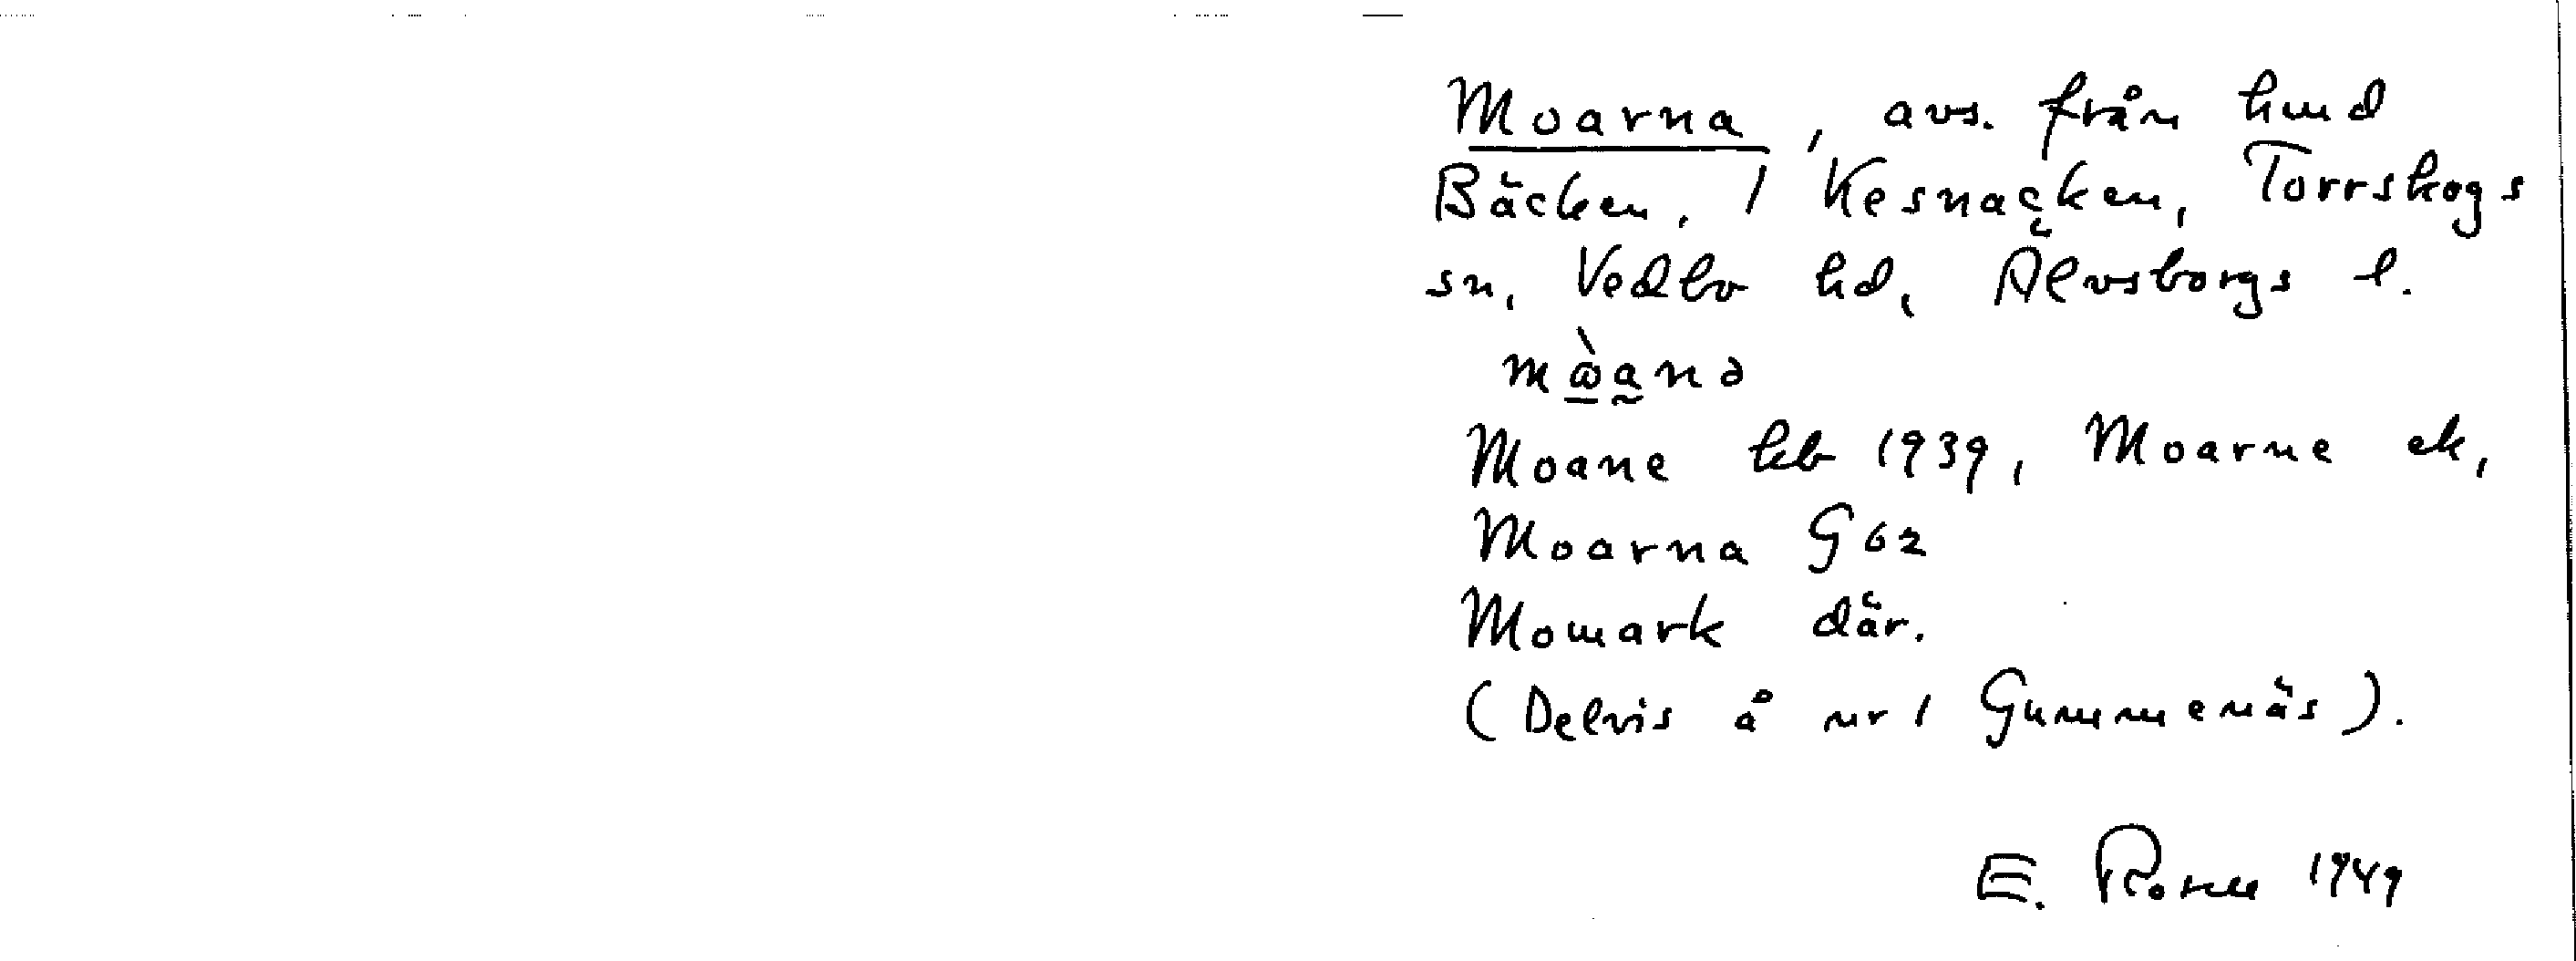 Moarna, avs. från hmd
Bäcken, 1 Kesnacken, Torrskogs
sn, Vedbo hd, Älvsborgs l.
Moane kb 1939, Moarne ek,
Moarna G62
Momark där.
(Delvis å nr 1 Gummenäs).
E. 1949